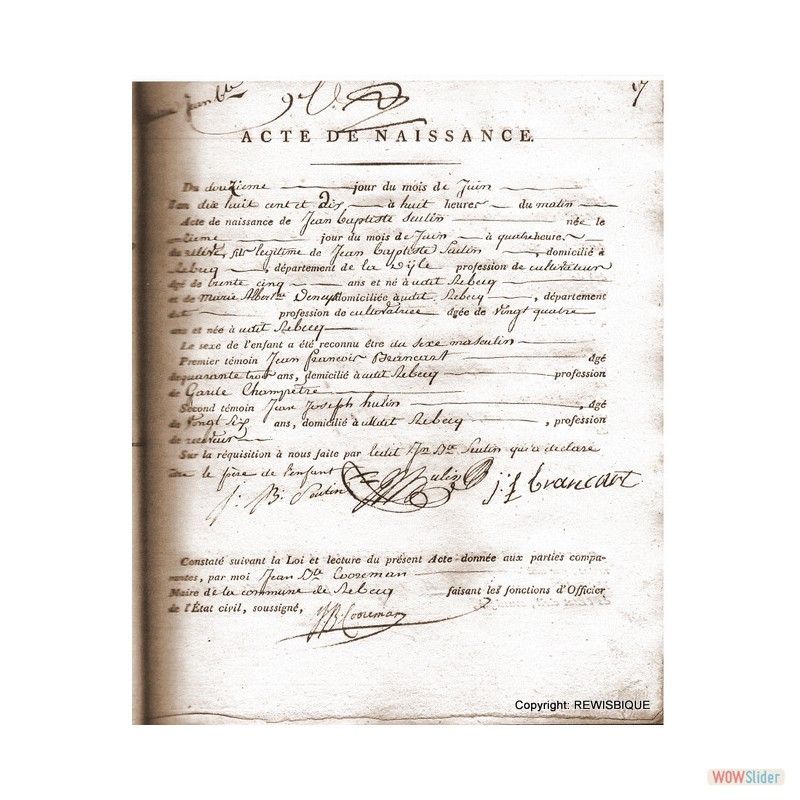 Jean Bte 17
ACTE DE NAISSANCE.
Du douzieme jour du mois de Juin
l'an dix huit cent et dix à huit heures du matin
Acte de naissance de Jean Baptiste Seutin née le
onzieme jour du mois de Juin à quatre heure.
fils legitime de Jean Baptiste Seutin, domicilié à
Rebecq, département de la Dÿle profession de cultivateur
âgé de trente cinq ans et né audit Rebecq
et de Marie domiciliée audit Rebecq, département
dut profession de cultivatrice âgée de vingt quatre
ans et née à udit Rebecq
Le sexe de l'enfant a été reconnu être du sexe masculin
Premier témoin Jean francois Brancart âgé
de quarante trois ans, domicilié à udit Rebecq profession
de Garde Champetre
Second témoin Jean Joseph hulin, âgé
de vingt six ans, domicilié à udit Rebecq, profession
de receveur
Sur la réquisition à nous faite par ledit Jn Bte Seutin qui a declaré
etre le père de l'enfant
J: B: Seutin hulin j: f brancart
Constaté suivant la Loi et lecture du présent Acte donnée aux parties compa-
rantes, par moi Jean Bte Cooreman
Maire de la commune de Rebecq faisant les fonctions d'Officier
de l'État civil, soussigné, JB: Cooreman
Copyright: REWISBIQUE
WOWSlider